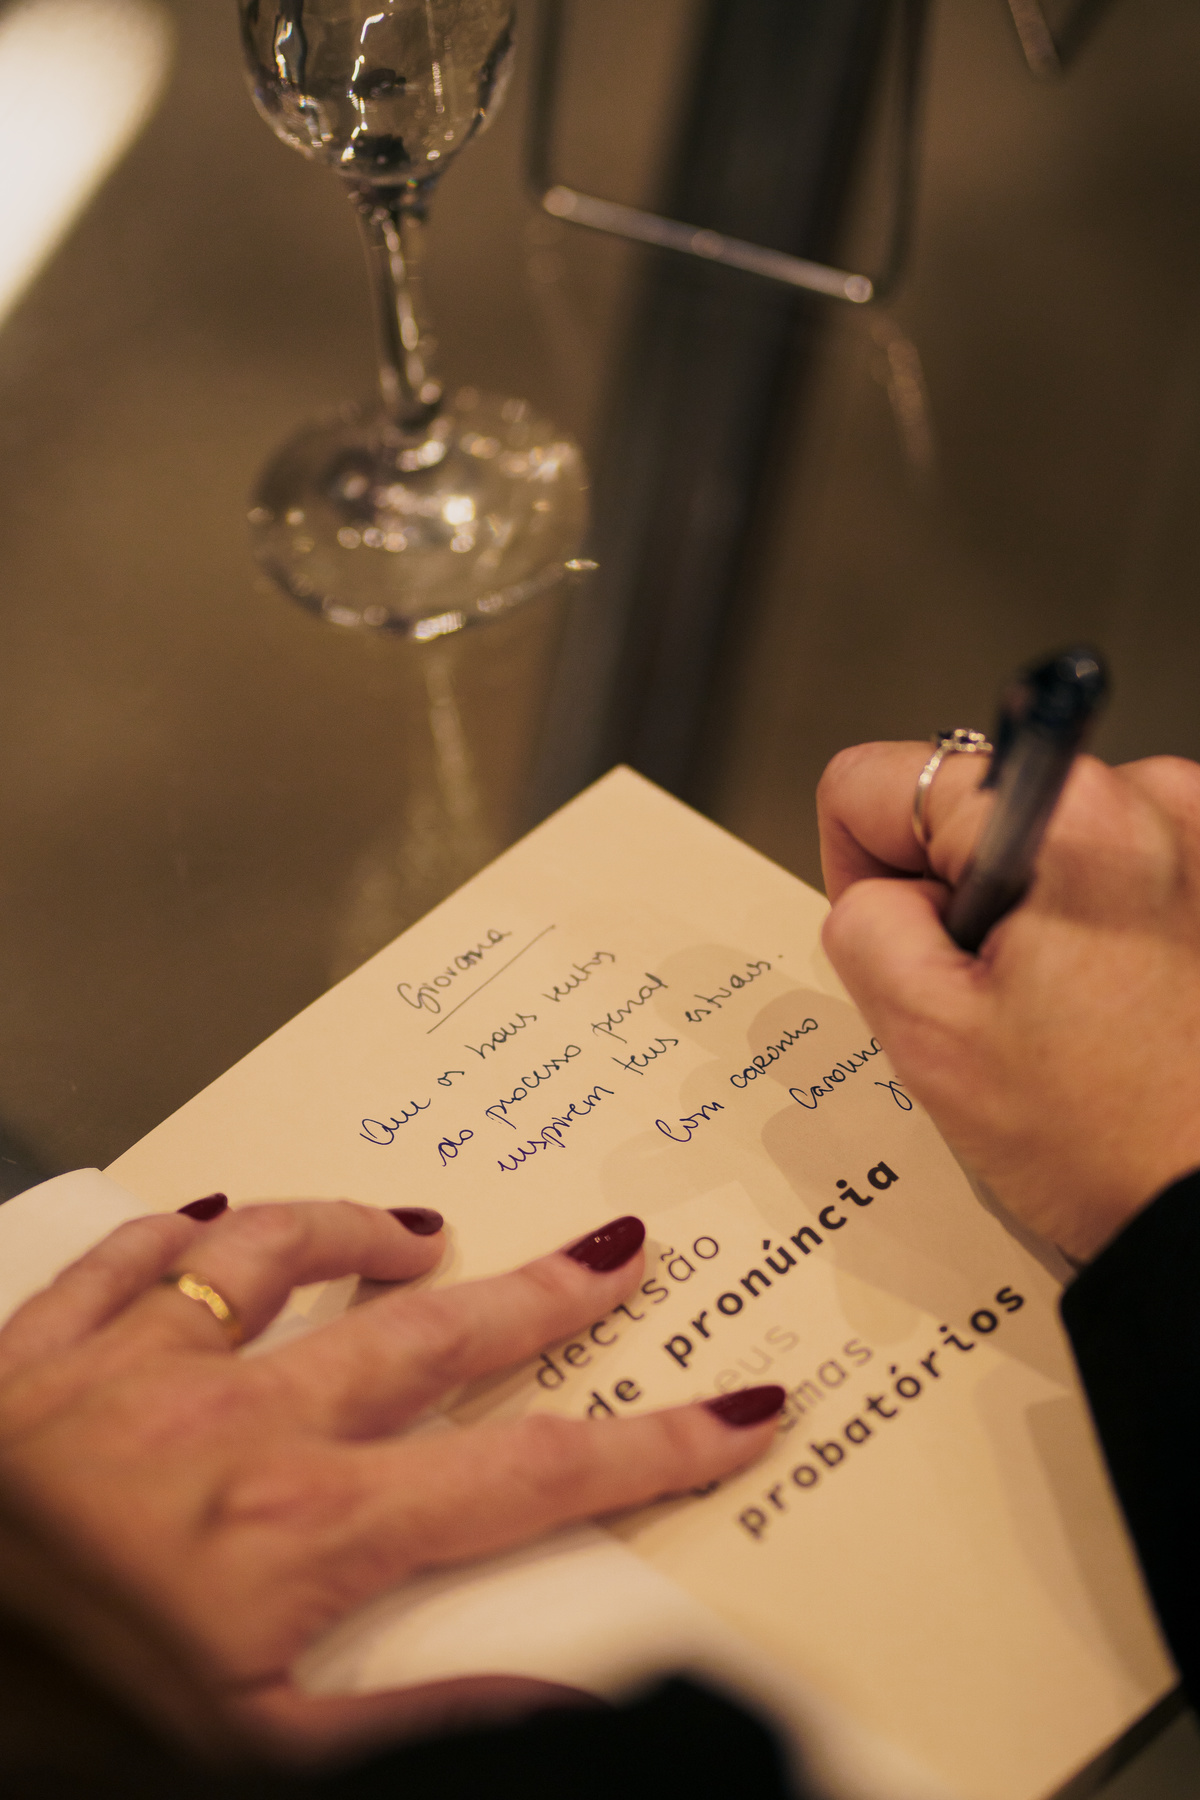 Giovana
Que os bons ventos
do processo penal
inspirem teus estudos.
Com carinho
Carolina
decisão
de pronúncia
seus
probatórios